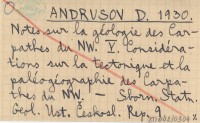 ANDRUSOV D. 1930.
Notes sur la géologie des Car-
pathes du NW. V. Considéra-
tions sur la tectonique et la
paléogéographie des Carpa-
thes du NW. - Sborn. Státn.
Geol. Úst. Českosl. Rep. 9